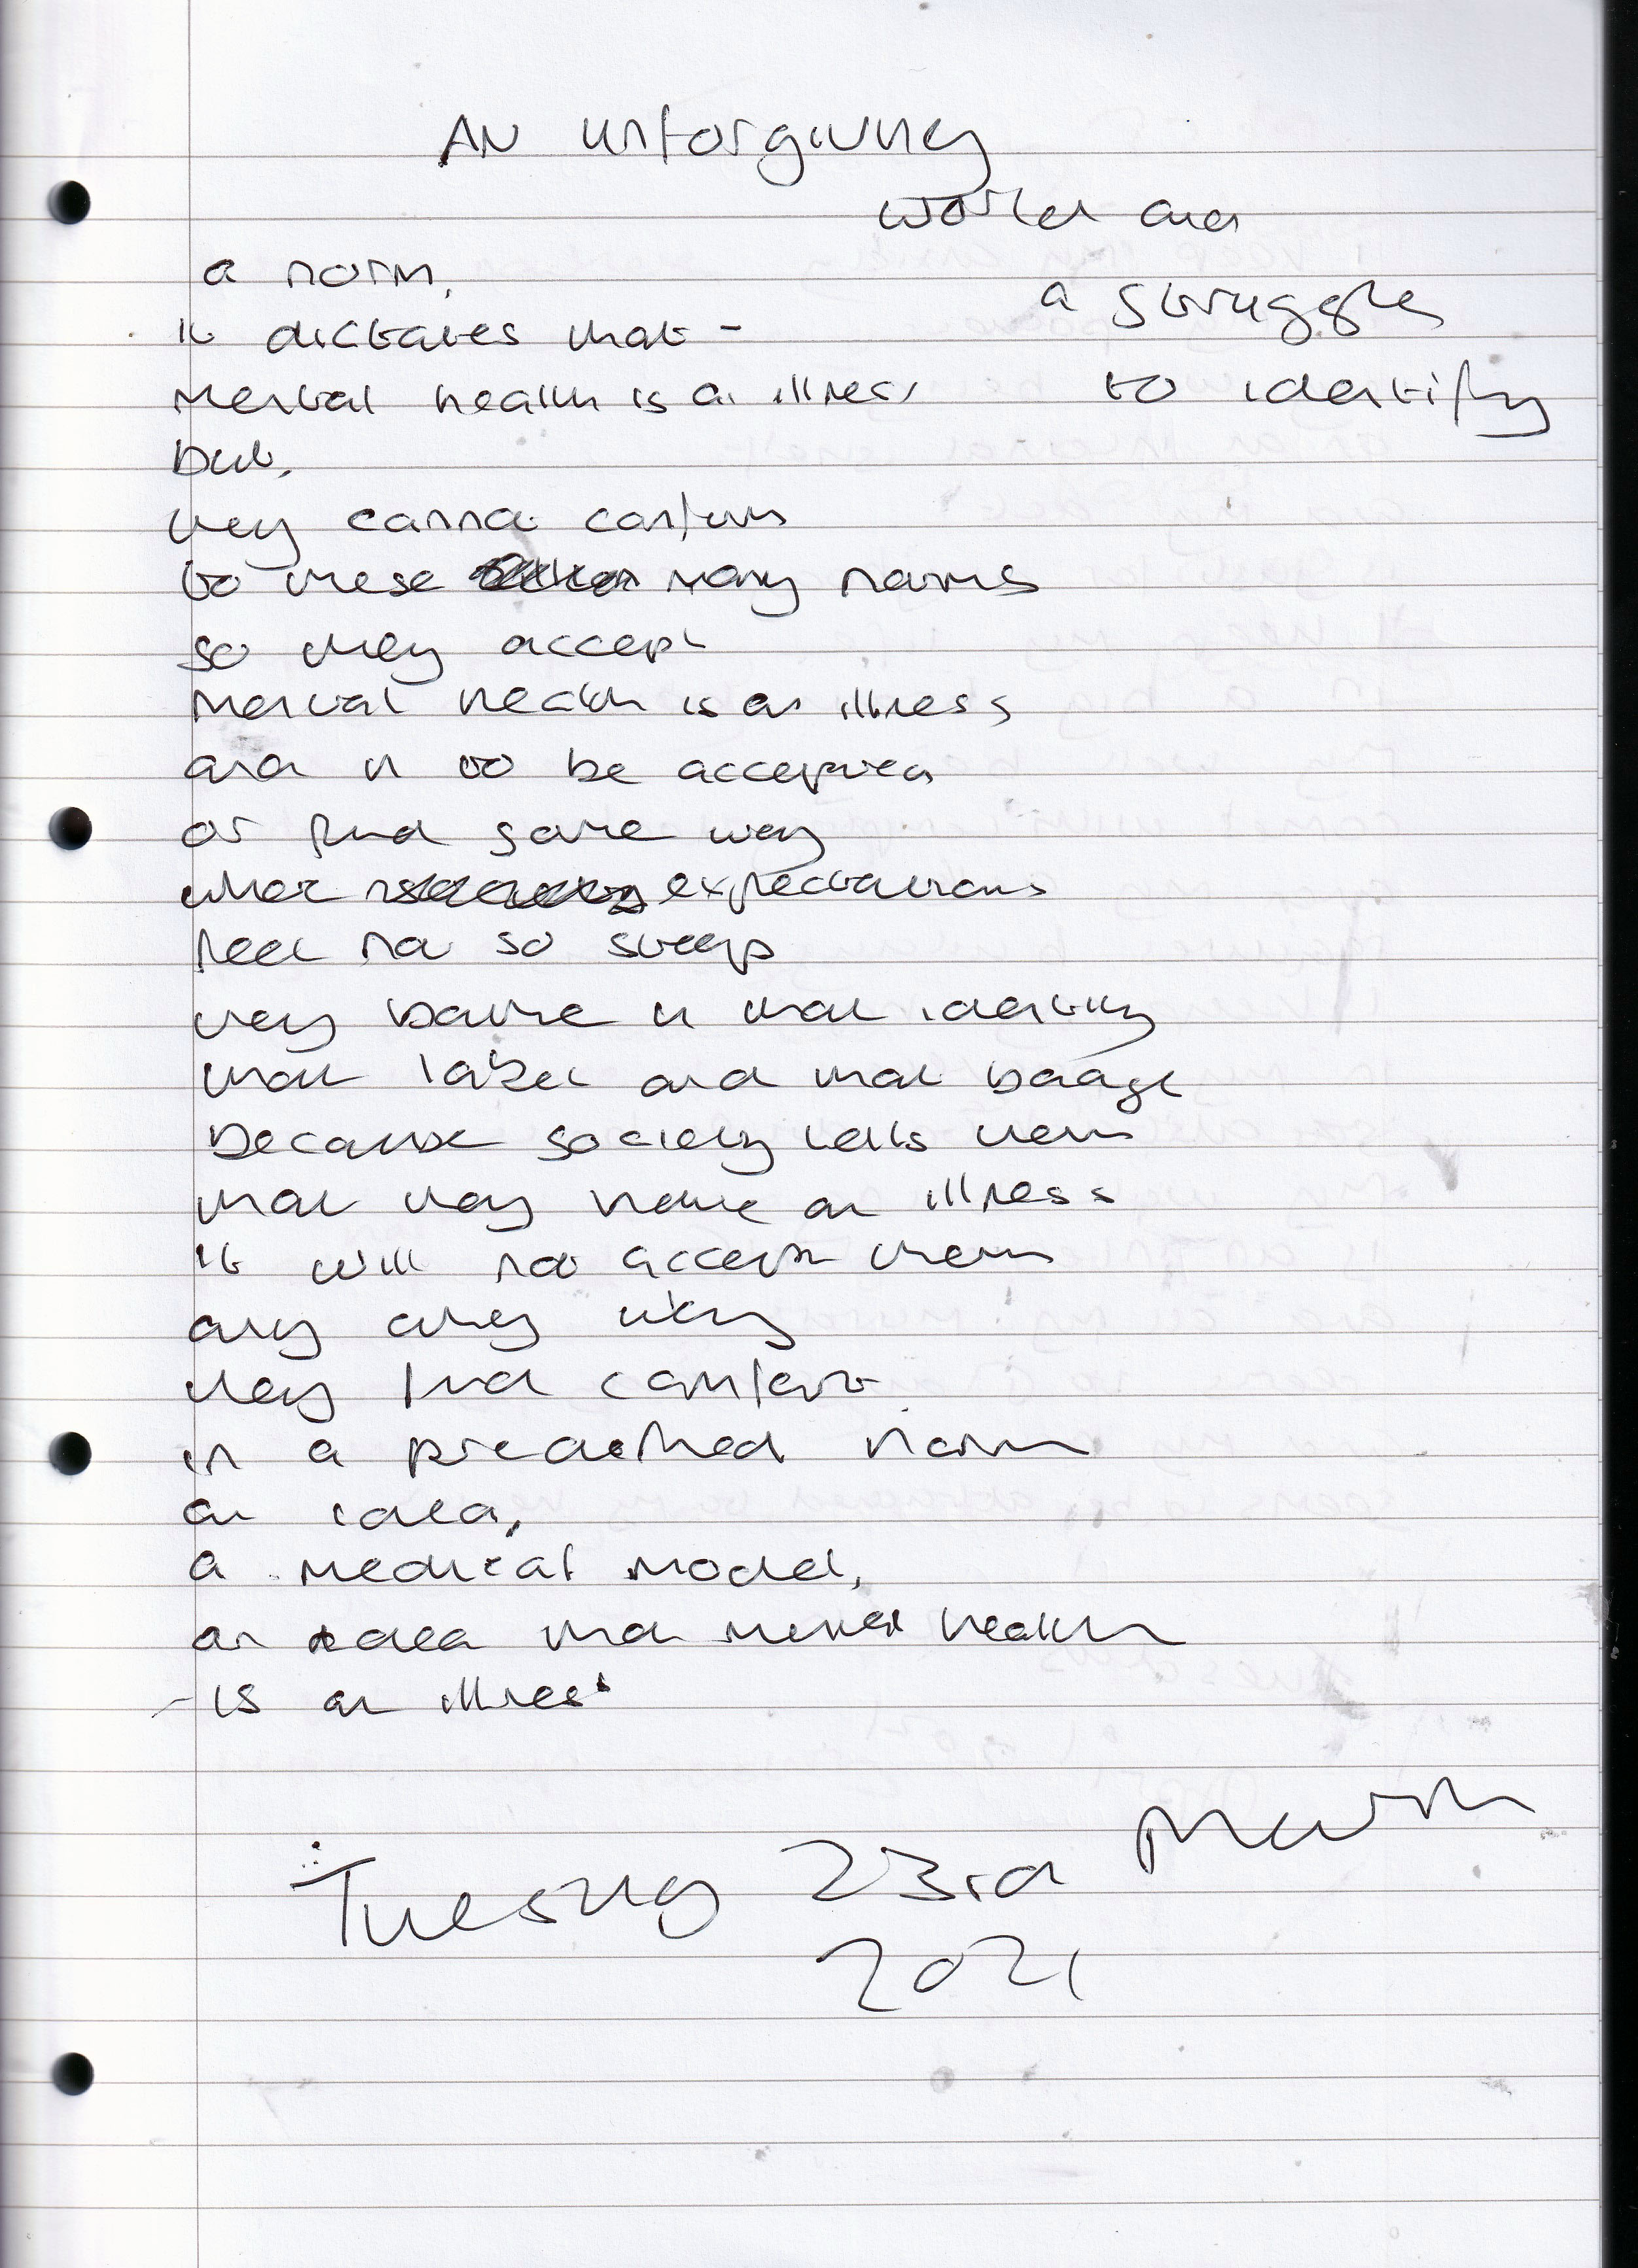 An unforgiving
world and
a struggle
to identify
a norm,
it dictates that -
mental health is an illness
but,
they cannot conform
to these many norms
so they accept
mental health is an illness
and is to be accepted
or find some way
where expectations
feel not so steep
they bathe in that identity
that label and that badge
because society tells them
that they have an illness
it will not accept them
any other way
they find comfort
in a preached norm
an idea,
a medical model,
an idea that mental health
- is an illness
Tuesday 23rd March
2021